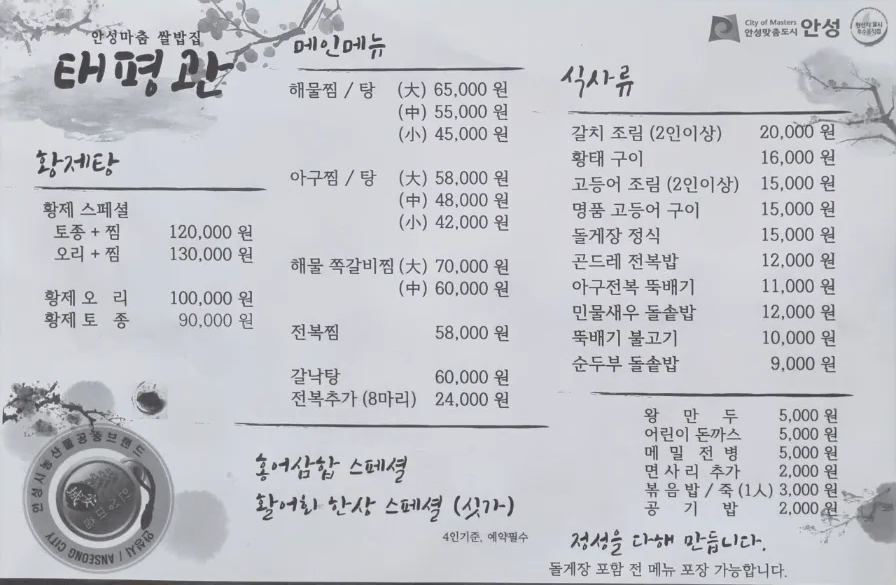 안성마춤 쌀밥집
태평관
황제탕
황제 스페셜
토종 + 찜 120,000 원
오리 + 찜 130,000 원
황제 오 리 100,000 원
황제 토 종 90,000 원
안성시농산물공동브랜드
안성시 / ANSEONG CITY
메인메뉴
해물찜 / 탕 (大) 65,000 원
(中) 55,000 원
(小) 45,000 원
아구찜 / 탕 (大) 58,000 원
(中) 48,000 원
(小) 42,000 원
해물 쪽갈비찜 (大) 70,000 원
(中) 60,000 원
전복찜 58,000 원
갈낙탕 60,000 원
전복추가 (8마리) 24,000 원
홍어삼합 스페셜
활어회 한상 스페셜 (싯가)
4인기준, 예약필수
City of Masters
안성맞춤도시 안성
식사류
갈치 조림 (2인이상) 20,000 원
황태 구이 16,000 원
고등어 조림 (2인이상) 15,000 원
명품 고등어 구이 15,000 원
돌게장 정식 15,000 원
곤드레 전복밥 12,000 원
아구전복 뚝배기 11,000 원
민물새우 돌솥밥 12,000 원
뚝배기 불고기 10,000 원
순두부 돌솥밥 9,000 원
왕 만 두 5,000 원
어린이 돈까스 5,000 원
메 밀 전 병 5,000 원
면 사 리 추가 2,000 원
볶 음 밥 / 죽 (1人) 3,000 원
공 기 밥 2,000 원
정성을 다해 만듭니다.
돌게장 포함 전 메뉴 포장 가능합니다.